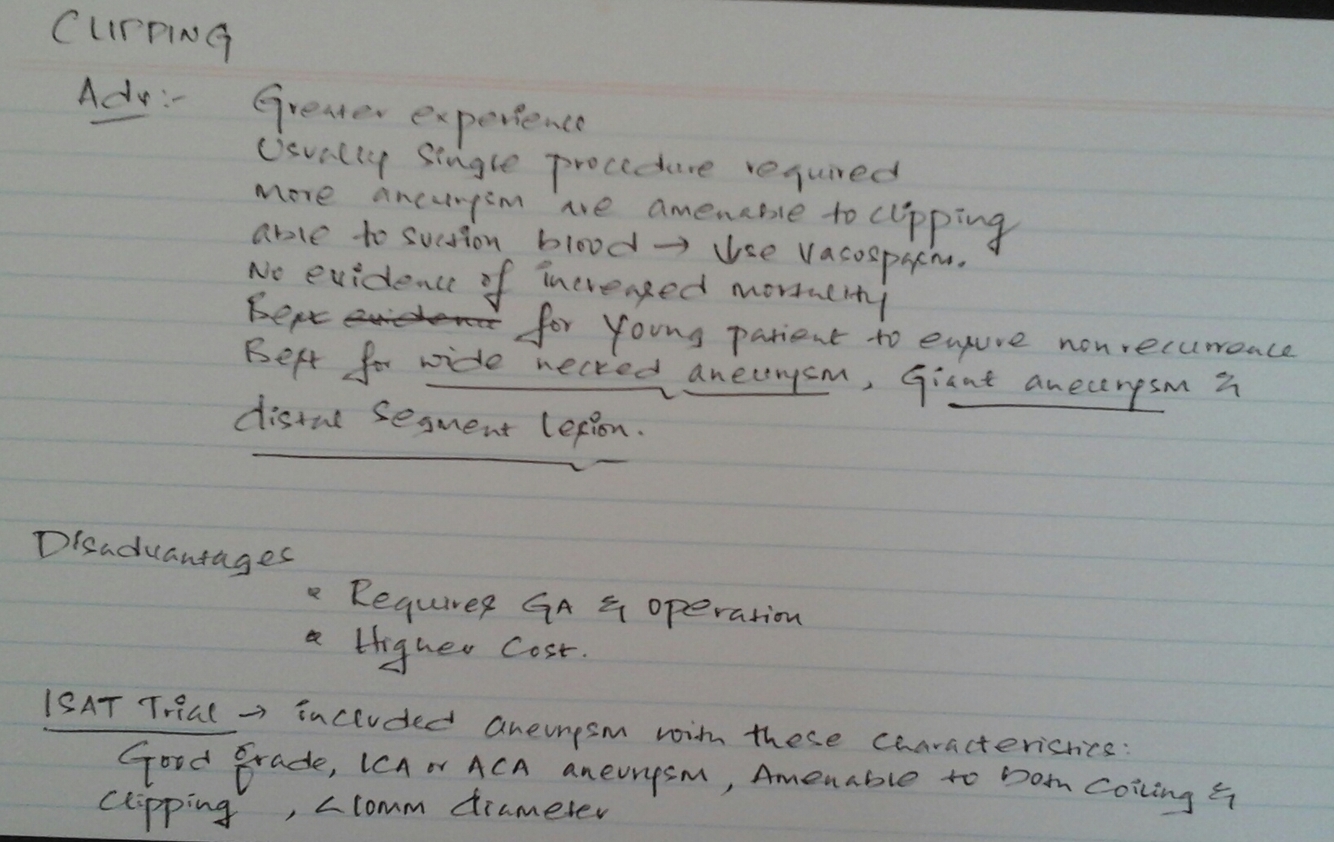 CLIPPING
Adv:- Greater experience
Usually single procedure required
More aneurysm are amenable to clipping
able to suction blood → ↓se vasospasm.
No evidence of increased mortality
Best evidence for young patient to ensure nonrecurrence
Best for wide necked aneurysm, Giant aneurysm &
distal segment lesion.
Disadvantages
* Requires GA & operation
* Higher cost.
ISAT Trial → included aneurysm with these characteristics:
Good grade, ICA or ACA aneurysm, Amenable to both coiling &
clipping, <10mm diameter